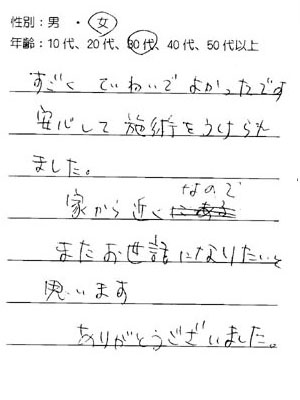 性別：男 ・ 女
年齢：10代、20代、30代、40代、50代以上
すごく ていねいで よかったです
安心して 施術を うけられ
ました。
家から 近くなので
またお世話になりたいと
思います
ありがとうございました。